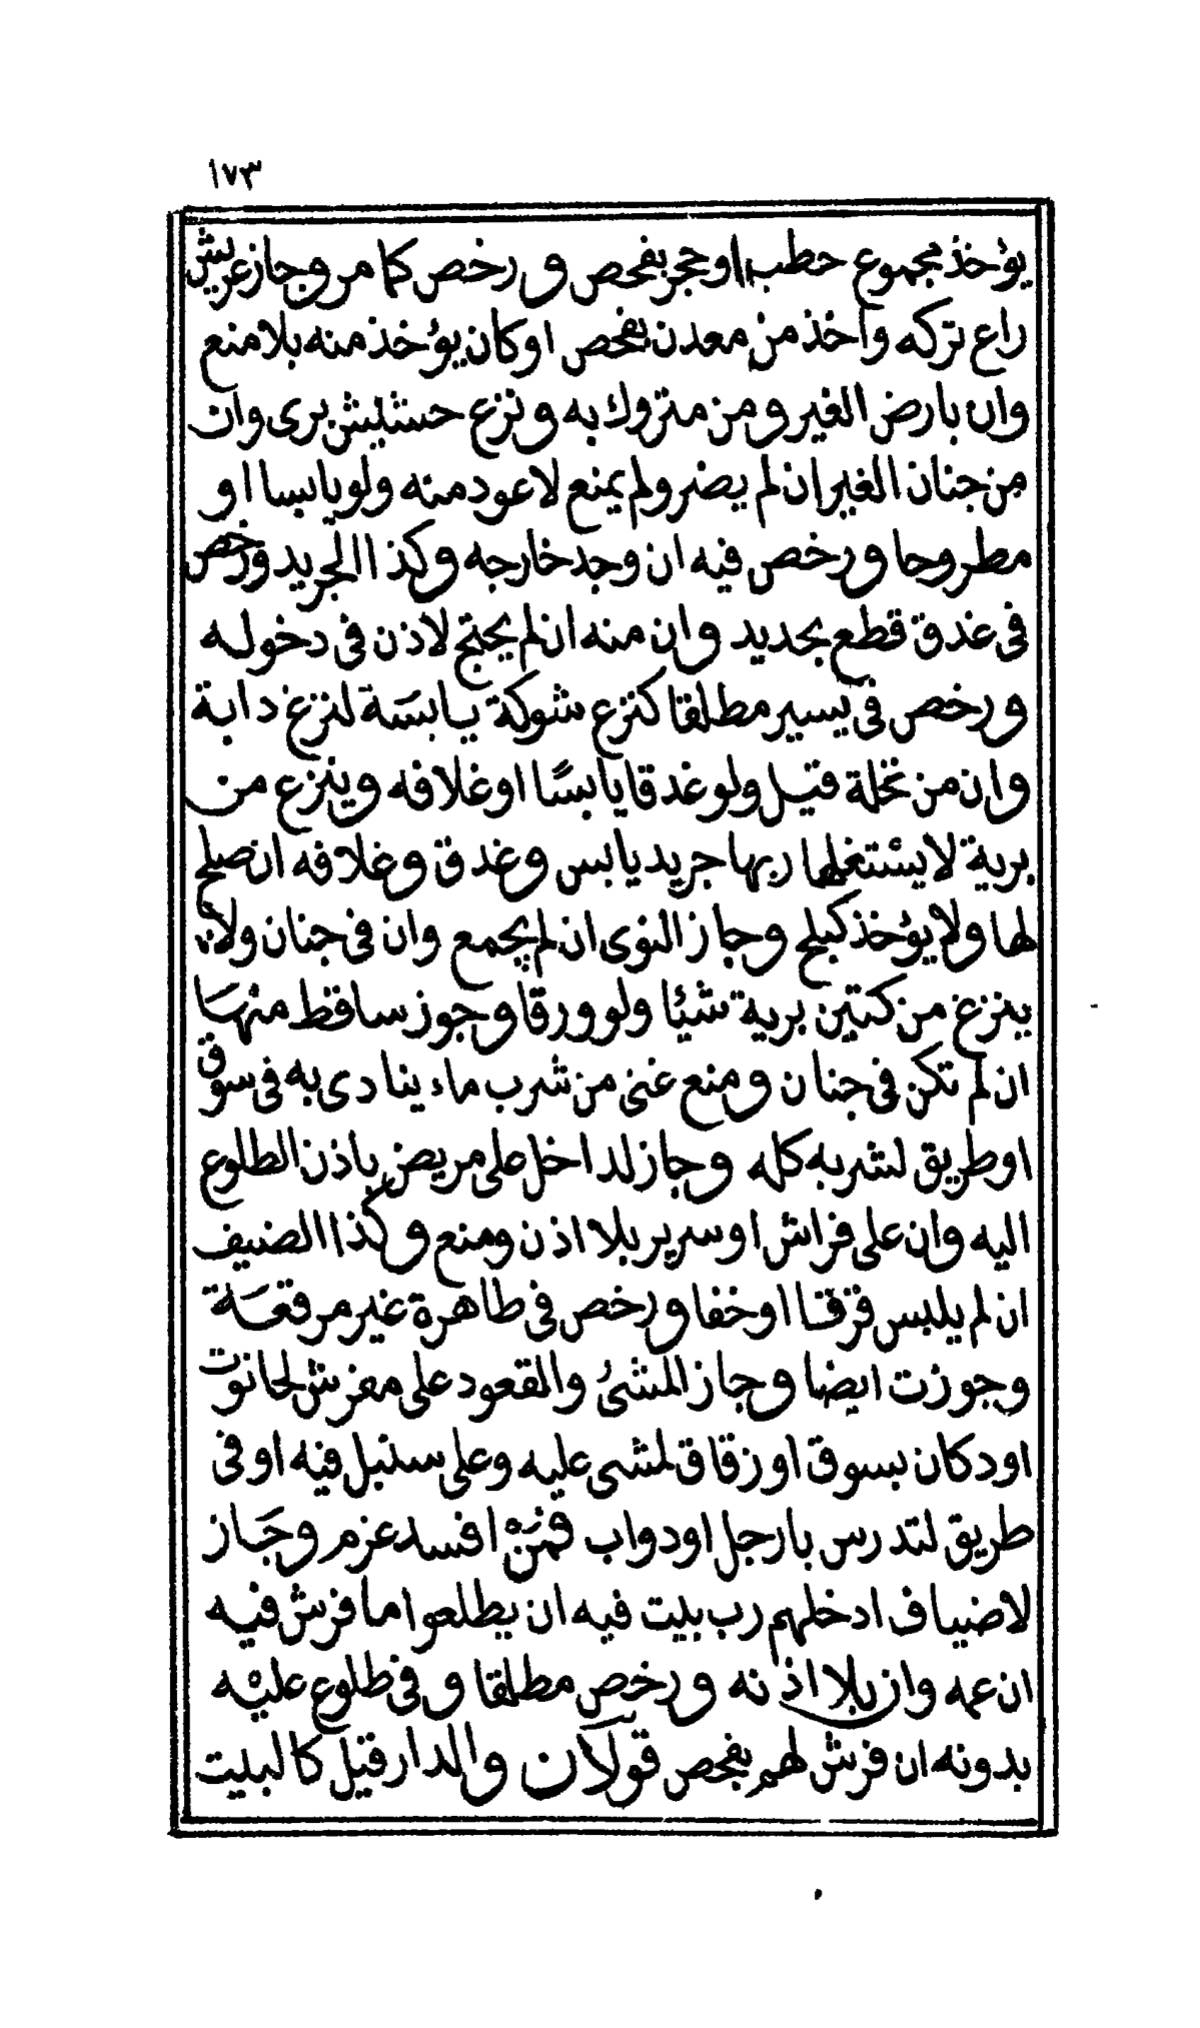 ١٧٣
يؤخذ مجموع حطب او حجر بفحص و رخص كما مر وجاز عريش
راع تركه واخذ من معدن بفحص اوكان يؤخذ منه بلا منع
وان بارض الغير و من متروك به و نزع حشيش برى وان
من جنان الغير ان لم يضر ولم يمنع لا عود منه ولو يابسا او
مطروحا و رخص فيه ان وجد خارجه وكذا الجريد ورخص
فى غدق قطع بحديد وان منه ان لم يحتج لاذن فى دخوله
و رخص فى يسير مطلقا كنزع شوكة يابسة لنزغ دابة
وان من نخلة قيل ولو غدقا يابسًا اوغلافه وينزع من
برية لا يستغلها ربها جريد يابس وغدق وغلافه ان صلح
لها ولم يؤخذ كبلح وجاز النوى ان لم يجمع وان فى جنان ولا
ينزغ من كتين برية شيئا ولو ورقا وجوز ساقط منها
ان لم تكن فى جنان ومنع غنى من شرب ماء ينادى به فى سوق
اوطريق لشربه كله وجاز لداخل على مريض باذن الطلوع
اليه وان على فراش اوسرير بلا اذن ومنع وكذا الضيف
ان لم يلبس قرقا اوخفا ورخص فى طاهرة غير مرقعة
وجوزت ايضا وجاز المشئ والقعود على مفرش لحانوت
اودكان بسوق اوزقاق لمشى عليه وعلى سنبل فيه اوفى
طريق لتدرس بارجل اودواب فمن افسد غرم وجاز
لاضياف ادخلهم رب بيت فيه ان يطلعوا ما فرش فيه
ان عمه وان بلا اذنه ورخص مطلقا و فى طلوع عليه
بدونه ان فرش لهم بفحص قولان والدار قيل كالبيت